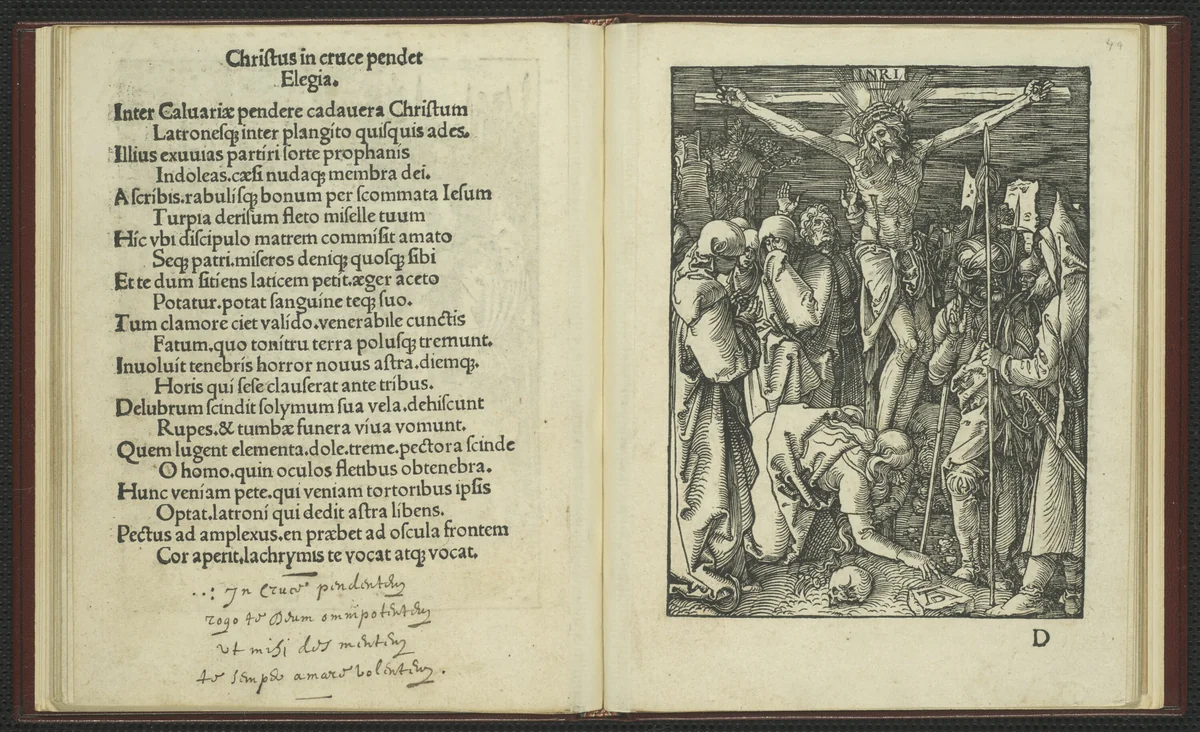 Chriſtus in cruce pendet
Elegia.
Inter Caluariæ pendere cadauera Chriſtum
Latroneſq; inter plangito quiſquis ades.
Illius exuuias partiri ſorte prophanis
Indoleas.cæſi nudaq; membra dei.
A ſcribis.rabuliſq; bonum per ſcommata Ieſum
Turpia deriſum fleto miſelle tuum
Hic vbi diſcipulo matrem commiſit amato
Seq; patri.miſeros deniq; quoſq; ſibi
Et te dum ſitiens laticem petit.æger aceto
Potatur.potat ſanguine teq; ſuo.
Tum clamore ciet valido.venerabile cunctis
Fatum.quo tonitru terra poluſq; tremunt.
Inuoluit tenebris horror nouus aſtra.diemq;.
Horis qui ſeſe clauſerat ante tribus.
Delubrum ſcindit ſolymum ſua vela.dehiſcunt
Rupes.& tumbæ funera viua vomunt.
Quem lugent elementa.dole.treme.pectora ſcinde
O homo.quin oculos fletibus obtenebra.
Hunc veniam pete.qui veniam tortoribus ipſis
Optat.latroni qui dedit aſtra libens.
Pectus ad amplexus.en præbet ad oſcula frontem
Cor aperit.lachrymis te vocat atq; vocat.
..: In Cruce pendentem
rogo te Deum omnipotentem
ut mihi des mentem
te semper amare volentem.
49
INRI
D